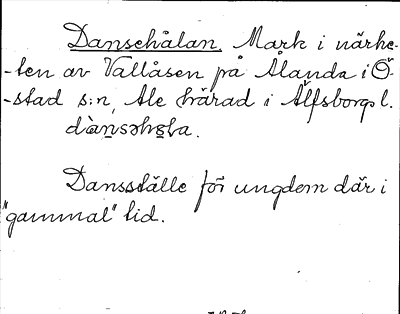 Dansehålan, Mark i närhe-
-ten av Vallåsen på Ålanda i Ö-
-stad s:n, Ale härad i Älfsborgs l.
Dansställe för ungdem där i
"gammal" tid.